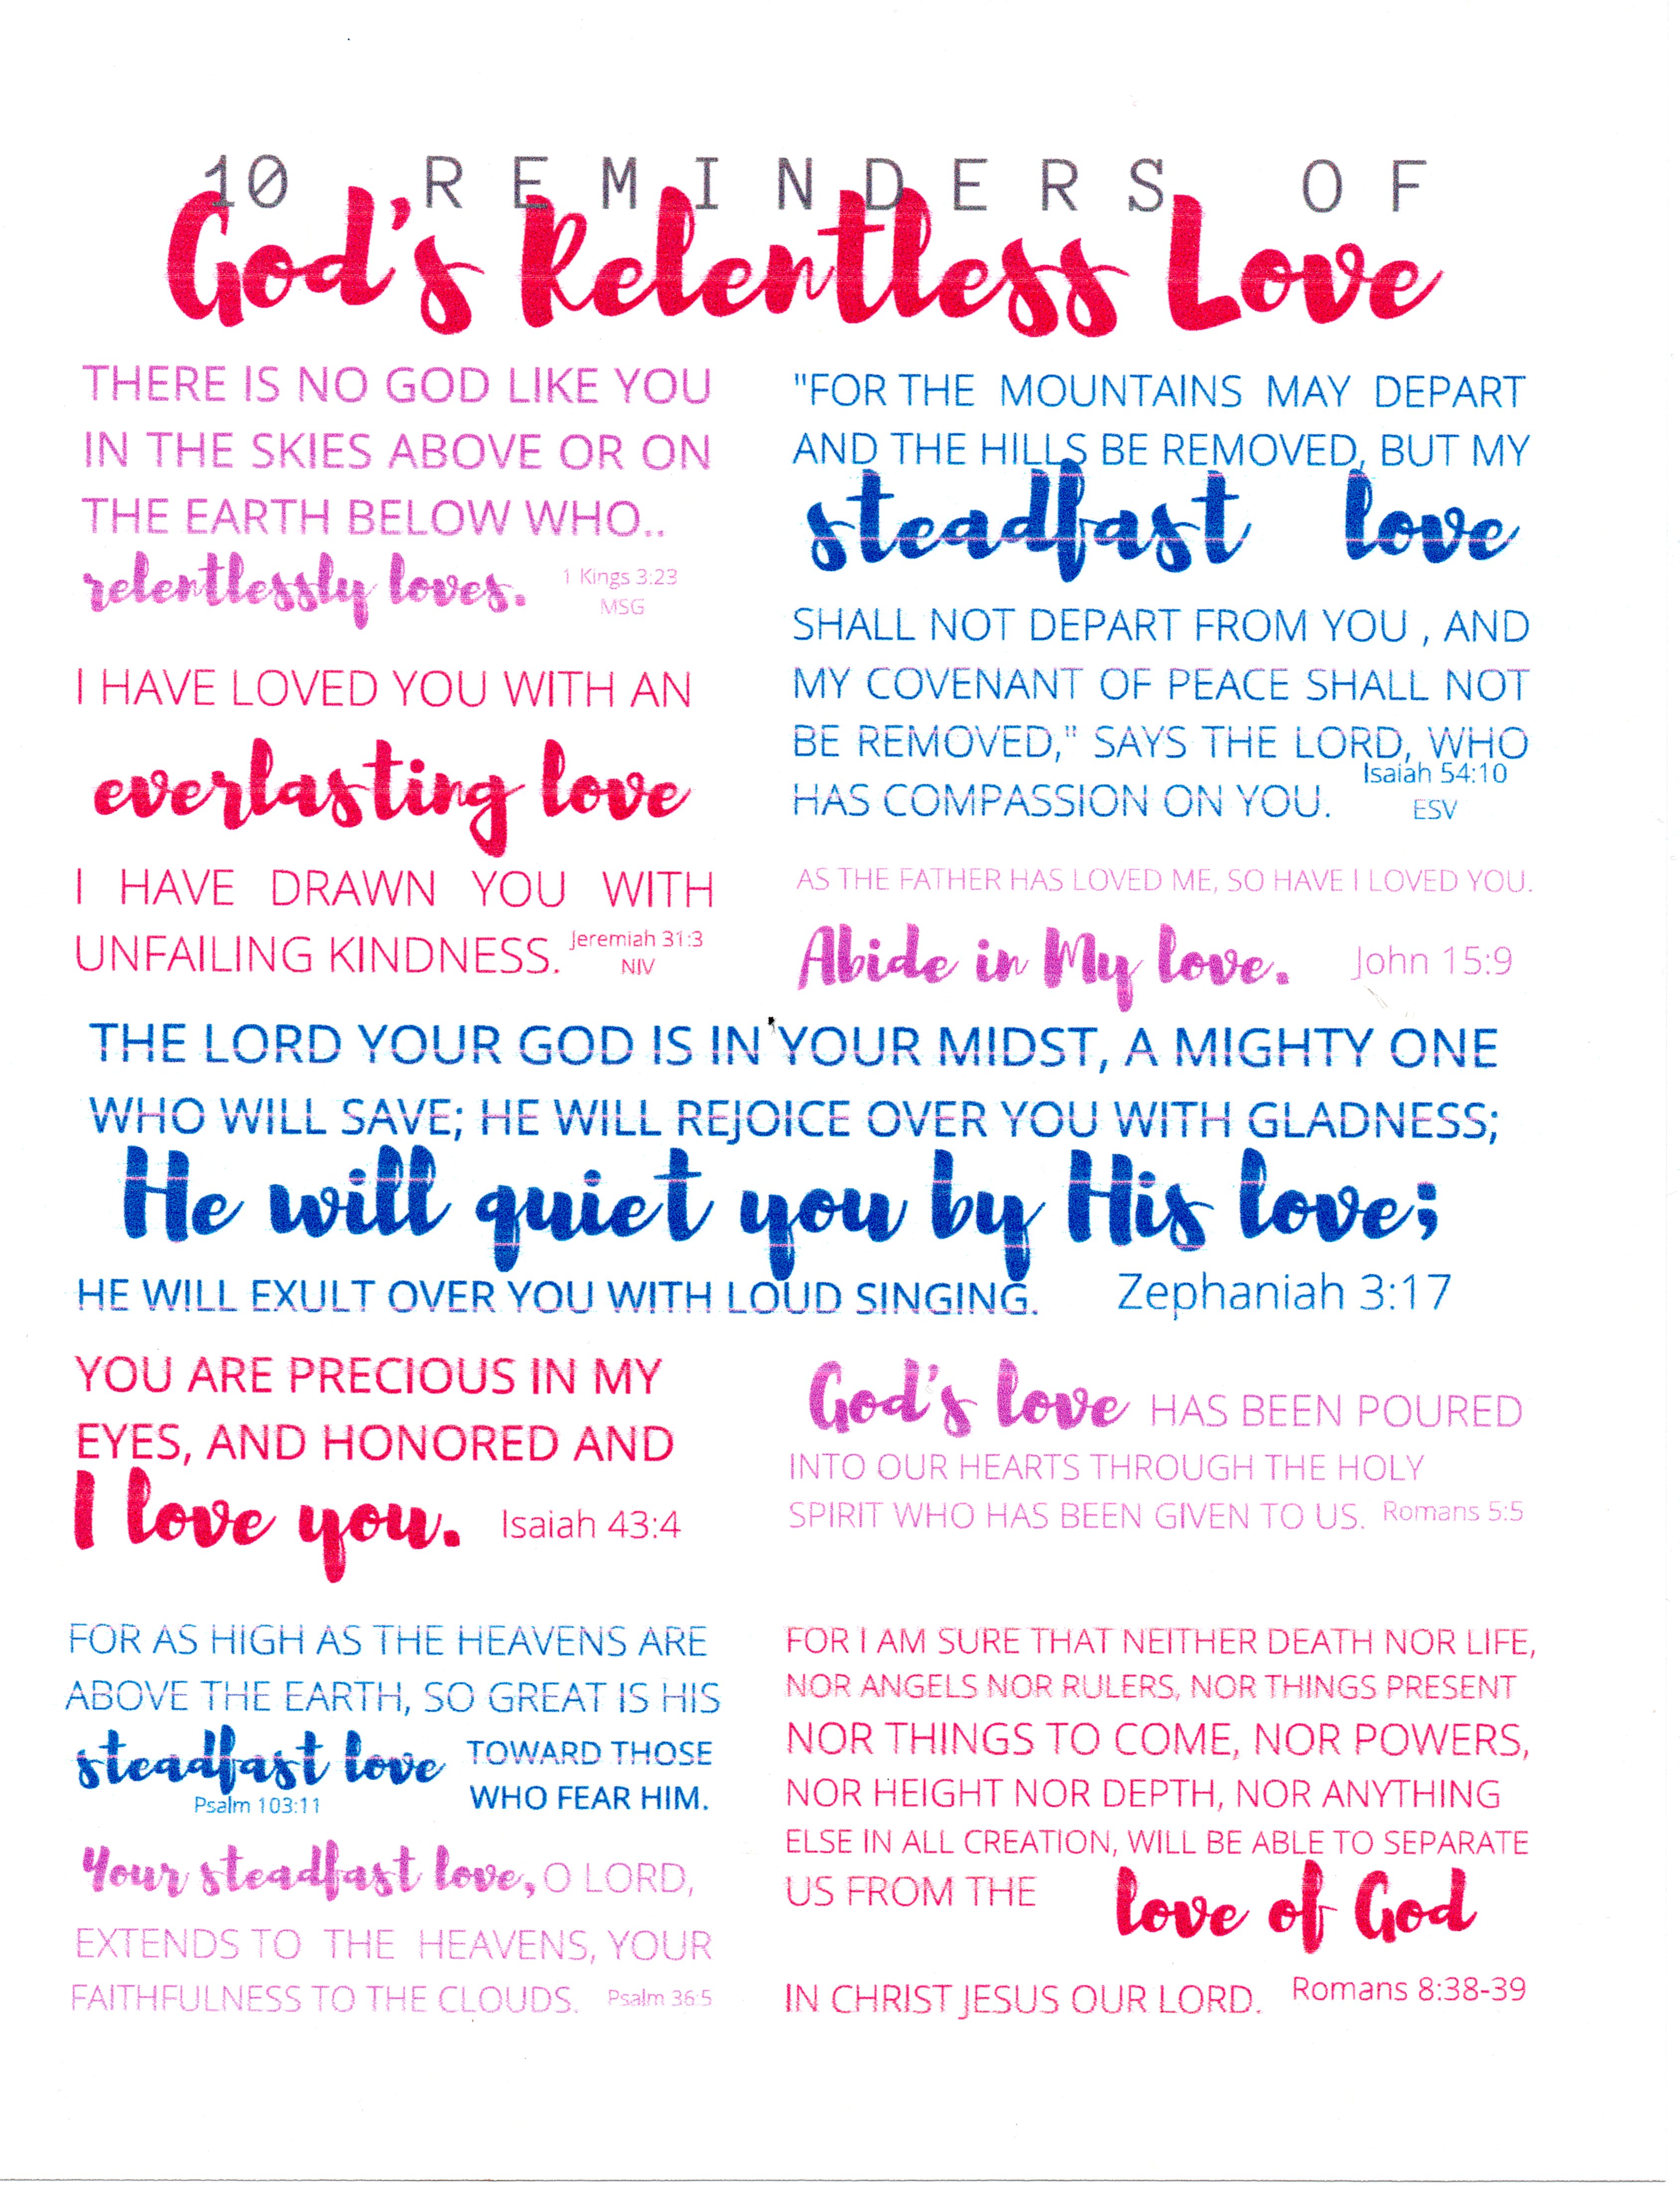 10 REMINDERS OF
God's Relentless Love
THERE IS NO GOD LIKE YOU
IN THE SKIES ABOVE OR ON
THE EARTH BELOW WHO..
relentlessly loves. 1 Kings 3:23
MSG
I HAVE LOVED YOU WITH AN
everlasting love
I HAVE DRAWN YOU WITH
UNFAILING KINDNESS. Jeremiah 31:3
NIV
"FOR THE MOUNTAINS MAY DEPART
AND THE HILLS BE REMOVED, BUT MY
steadfast love
SHALL NOT DEPART FROM YOU , AND
MY COVENANT OF PEACE SHALL NOT
BE REMOVED," SAYS THE LORD, WHO
HAS COMPASSION ON YOU. Isaiah 54:10
ESV
AS THE FATHER HAS LOVED ME, SO HAVE I LOVED YOU.
Abide in My love. John 15:9
THE LORD YOUR GOD IS IN YOUR MIDST, A MIGHTY ONE
WHO WILL SAVE; HE WILL REJOICE OVER YOU WITH GLADNESS;
He will quiet you by His love;
HE WILL EXULT OVER YOU WITH LOUD SINGING. Zephaniah 3:17
YOU ARE PRECIOUS IN MY
EYES, AND HONORED AND
I love you. Isaiah 43:4
God's love HAS BEEN POURED
INTO OUR HEARTS THROUGH THE HOLY
SPIRIT WHO HAS BEEN GIVEN TO US. Romans 5:5
FOR AS HIGH AS THE HEAVENS ARE
ABOVE THE EARTH, SO GREAT IS HIS
steadfast love TOWARD THOSE
WHO FEAR HIM.
Psalm 103:11
Your steadfast love, O LORD,
EXTENDS TO THE HEAVENS, YOUR
FAITHFULNESS TO THE CLOUDS. Psalm 36:5
FOR I AM SURE THAT NEITHER DEATH NOR LIFE,
NOR ANGELS NOR RULERS, NOR THINGS PRESENT
NOR THINGS TO COME, NOR POWERS,
NOR HEIGHT NOR DEPTH, NOR ANYTHING
ELSE IN ALL CREATION, WILL BE ABLE TO SEPARATE
US FROM THE love of God
IN CHRIST JESUS OUR LORD. Romans 8:38-39